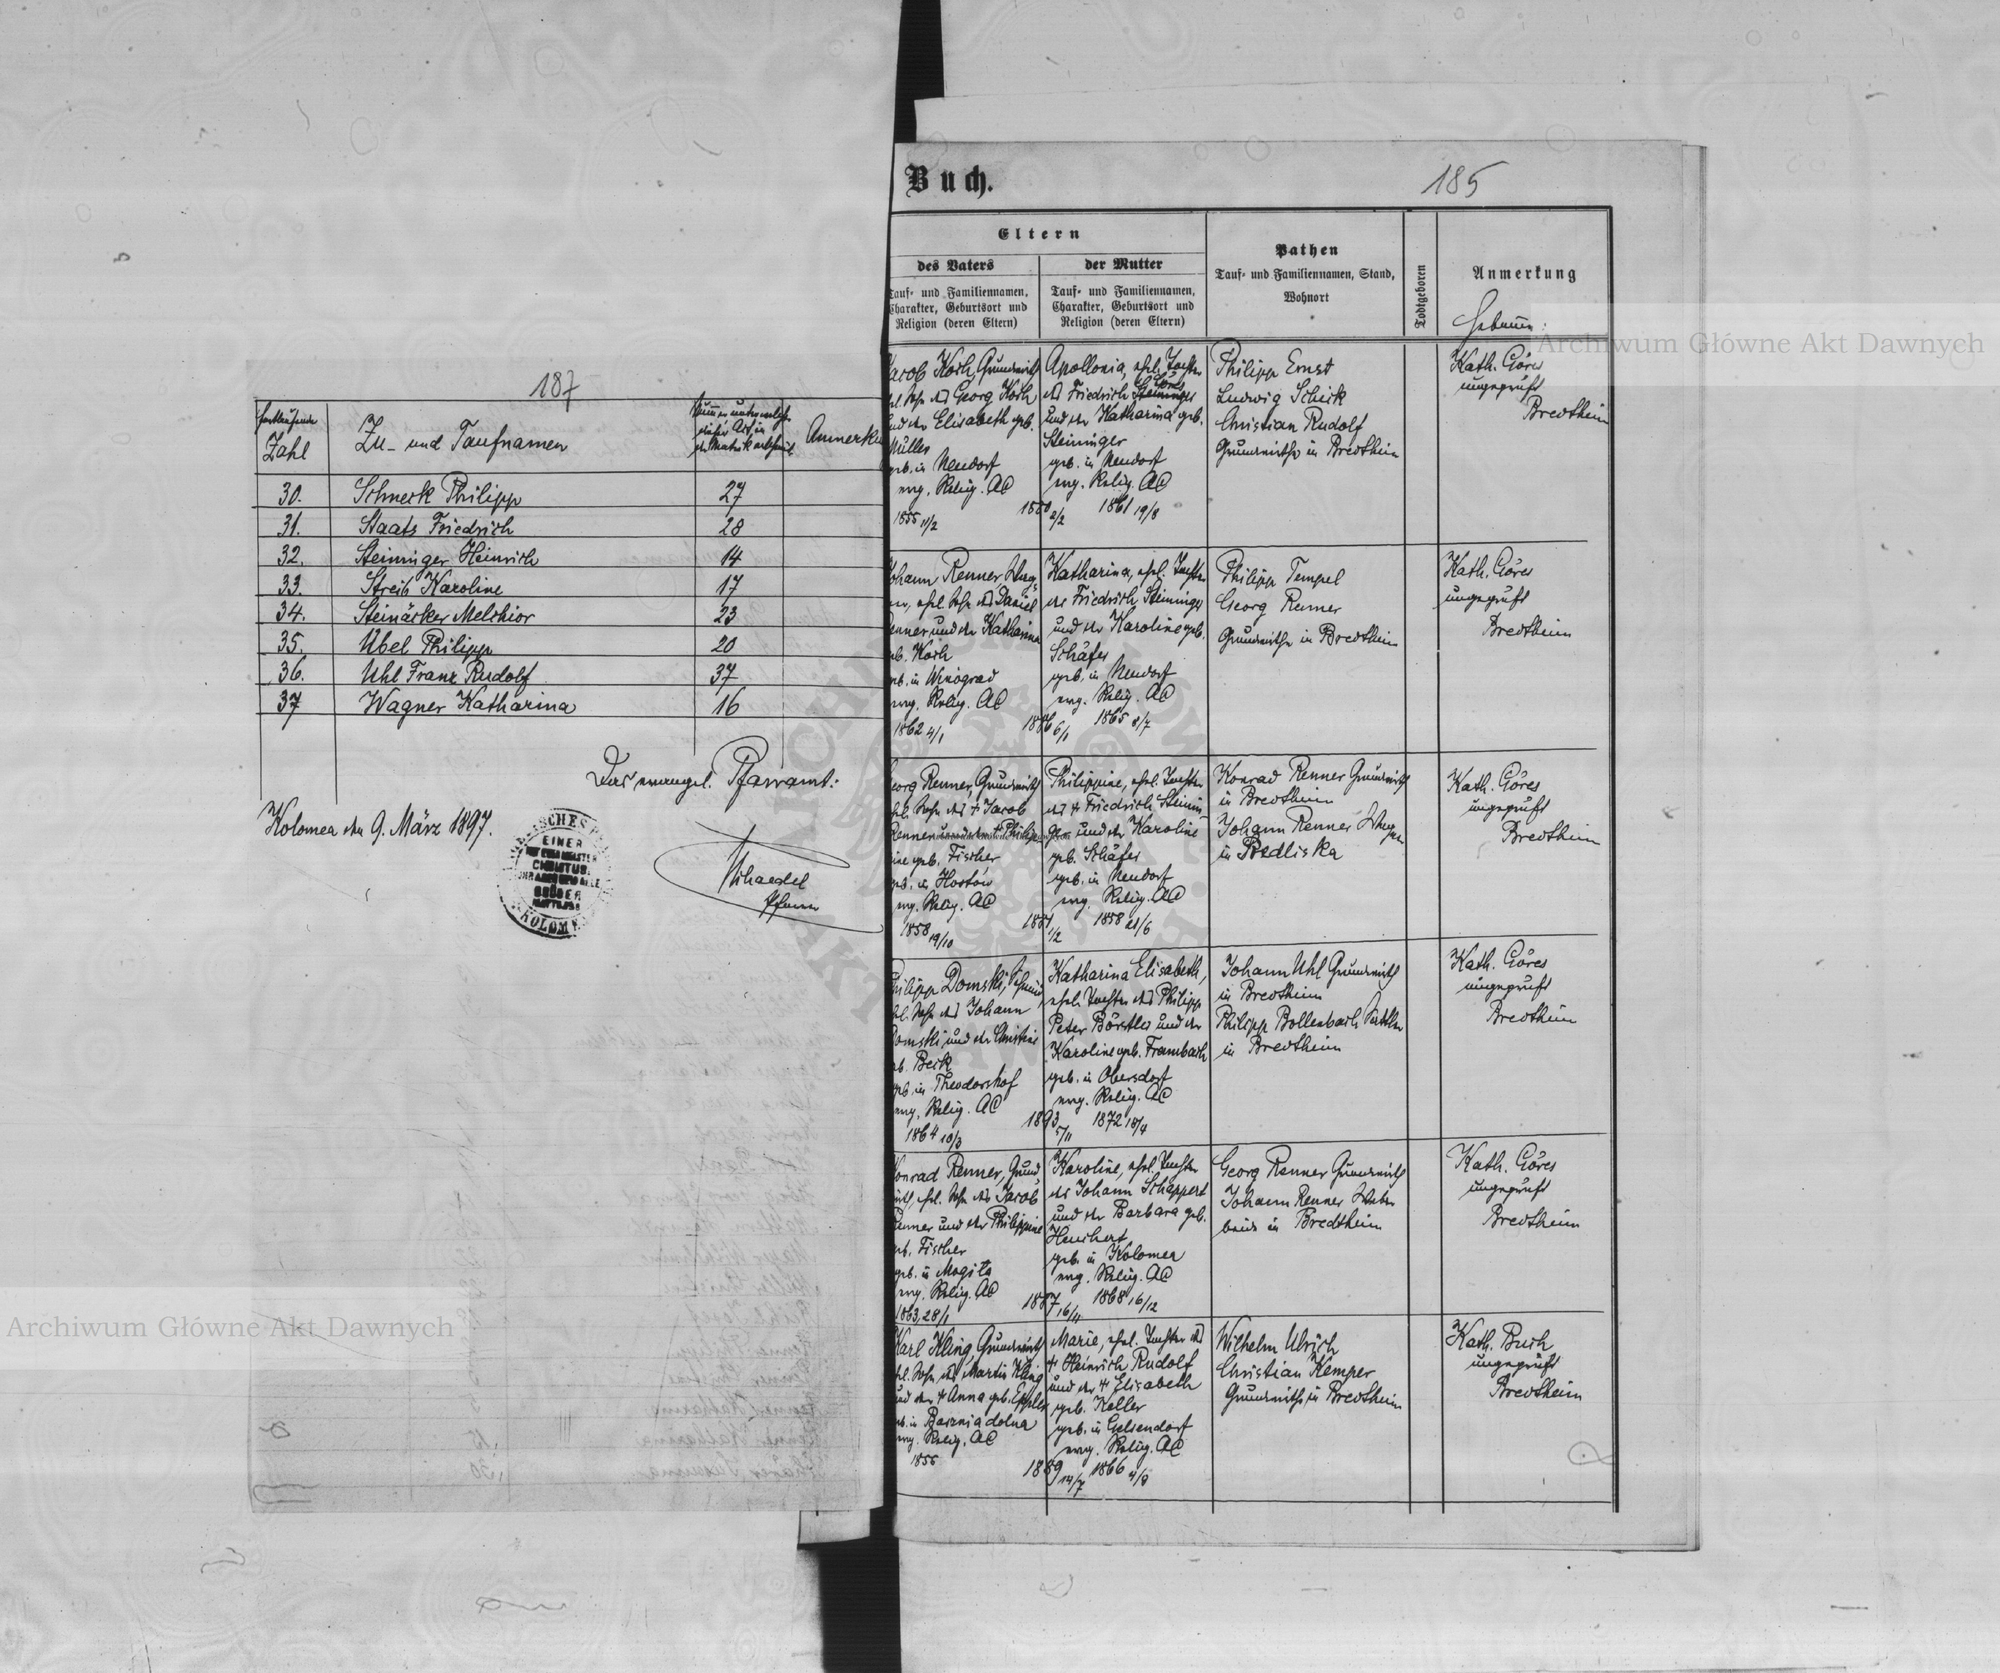 187
fortlaufende
Zahl
Zu- und Taufnamen
Anmerku
30. Schneck Philipp 27
31. Staats Friedrich 28
32. Steininger Heinrich 14
33. Streib Karoline 17
34. Steinäcker Melchior 23
35. Ubel Philipp 20
36. Uhl Franz Rudolf 37
37 Wagner Katharina 16
Das evangel. Pfarramt:
Kolomea den 9. März 1897.
EINER
CHRISTUS
BRÜDER
KOLOM
Buch.
185
Eltern
des Vaters
Tauf- und Familiennamen,
Charakter, Geburtsort und
Religion (deren Eltern)
der Mutter
Tauf- und Familiennamen,
Charakter, Geburtsort und
Religion (deren Eltern)
Pathen
Tauf- und Familiennamen, Stand,
Wohnort
Todtgeboren
Anmerkung
acob Koch, Grundwirth
hl. Sohn des Georg Koch
und der Elisabeth geb.
Müller
geb. in Neudorf
evg. Relig. AC
1855 11/2
1880 2/2
Apollonia, ehel. Tochter
des Friedrich Steininger
und der Katharina geb.
Steininger
geb. in Neudorf
evg. Relig. AC
1861 19/8
Philipp Ernst
Ludwig Schick
Christian Rudolf
Grundwirthe in Bredtheim
Kath. Göres
ungeprüft
Bredtheim
ohann Renner, Wag-
ner, ehel. Sohn des Daniel
enner und der Katharina
geb. Koch
geb. in Winograd
evg. Relig. AC
1862 4/1
1886 6/1
Katharina, ehel. Tochter
des Friedrich Steininger
und der Karoline geb.
Schäfer
geb. in Neudorf
evg. Relig. AC
1865 8/7
Philipp Tempel
Georg Renner
Grundwirthe in Bredtheim
Kath. Göres
ungeprüft
Bredtheim
eorg Renner, Grundwirth
ehl. Sohn des + Jacob
Renner und der + Philipp
ine geb. Fischer
geb. in Hostów
evg. Relig. AC
1858 19/10
1881 1/2
Philippine, ehel. Tochter
des + Friedrich Steinin
ger und der Karoline
geb. Schäfer
geb. in Neudorf
evg. Relig. AC
1858 21/6
Konrad Renner Grundwirth
in Bredtheim
Johann Renner Wagner
in Siedliska
Kath. Göres
ungeprüft
Bredtheim
hilipp Domski, Schmied,
hl. Sohn des Johann
Domski und der Christine
geb. Beck
geb. in Theodorshof
evg. Relig. AC
1864 10/3
1893 5/11
Katharina Elisabeth,
ehel. Tochter des Philipp
Peter Börstler und der
Karoline geb. Frambach
geb. in Obersdorf
evg. Relig. AC
1872 18/4
Johann Uhl Grundwirth
in Bredtheim
Philipp Bollenbach Sattler
in Bredtheim
Kath. Göres
ungeprüft
Bredtheim
Konrad Renner, Grund
wirth, ehl. Sohn des Jacob
Renner und der Philippine
geb. Fischer
geb. in Mogila
evg. Relig. AC
1863, 28/1
1887 16/11
Karoline, ehel. Tochter
des Johann Schappert
und der Barbara geb.
geb. in Kolomea
evg. Relig. AC
1868 16/12
Georg Renner Grundwirth
Johann Renner Weber
beide in Bredtheim
Kath. Göres
ungeprüft
Bredtheim
Karl Kling, Grundwirth
hl. Sohn des Martin Kling
und der + Anna geb. Eppler
geb. in Baznia dolna
evg. Relig. AC
1855
1889 14/7
Marie, ehel. Tochter des
+ Heinrich Rudolf
und der + Elisabeth
geb. Keller
geb. in Gelsendorf
evg. Relig. AC
1866 4/8
Wilhelm Ulrich
Christian Kemper
Grundwirthe in Bredtheim
Kath. Buch
ungeprüft
Bredtheim
Archiwum Główne Akt Dawnych
Archiwum Główne Akt Dawnych